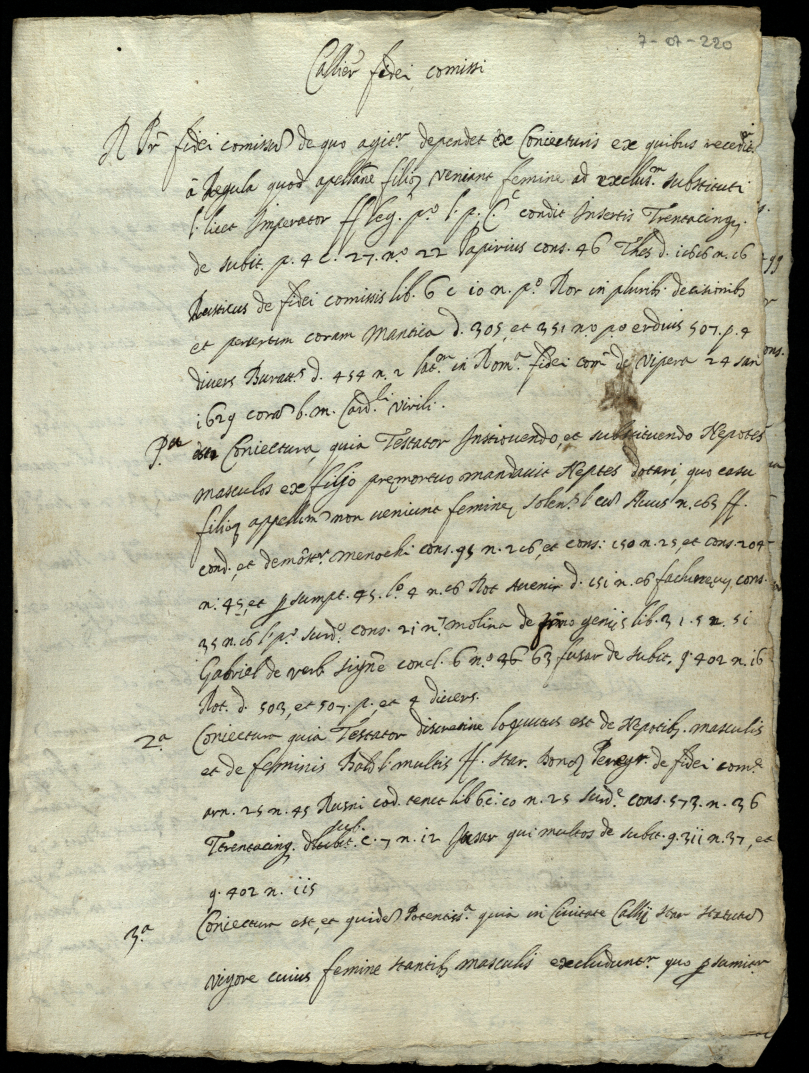 7-07-220
Callien fidei comissi
fidei comissũ de quo agitr dependet ex Coniecturis ex quibus receditr
à Regula quod apellane filioȝ veniant femine ad exclus.m substituti
l. licet Imperator ff leg. po condit Insertis Trentacinq.
de subit. p. 4 c. 27. no 22 Papirius cons. 46 Thes. d.
Rusticus de fidei comissis lib. 6 c 10 n. po Rot in plurib. decisionib
et coram Mantica d. 305, et 351 no po 507. p. 4
divers Buratt.s d. 454 n. 2 in Rom.a fidei com. de Vipera 24 Jan
1629 corã b. m. Card.li Virili.
P.a Coniectura, quia Testator Instituendo, et substituendo Nepotes
masculos ex filio premortuo mandavit Neptes dotari, quo casu
filioȝ appellne non veniunt femineȝ Avus n. c63 ff.
cond. et Menochi. cons. 95 n. 2c6, et cons: 150 n. 25, et cons. 204
n. 45, et psumpt. 45. l.o 4 n. c6 Rot Avenir. d. 151 n. c6 cons.
35 n. c6 l. po surdo. cons. 21 n. Molina de primo geniis lib. 3 1. 5 n. 51
Gabriel de verb. signe concl. 6 n.o 36 63 fusar de subit. q. 402 n. 16
Rot. d. 503, et 507. p. et 4 divers.
2a Coniectura quia Testator discretive loquutus est de Nepotib. masculis
et de feminis Bald. l. multis ff. star. Peregr. de fidei com.
arn. 25 n. 45 Rusni cod. tenet lib 6 c. 10 n. 25 Surd.e cons. 573. n. 36
sub.
Trentacinq. subit. c. 7 n. 12 fusar qui multos de subit. q. 311 n. 37, et
q. 402 n. 115
3a Coniectura est, et quidẽ Potentiss.a quia in Civitate Callij star statutũ
vigore cuius femine stantib. masculis excludunt.r quo psumitr